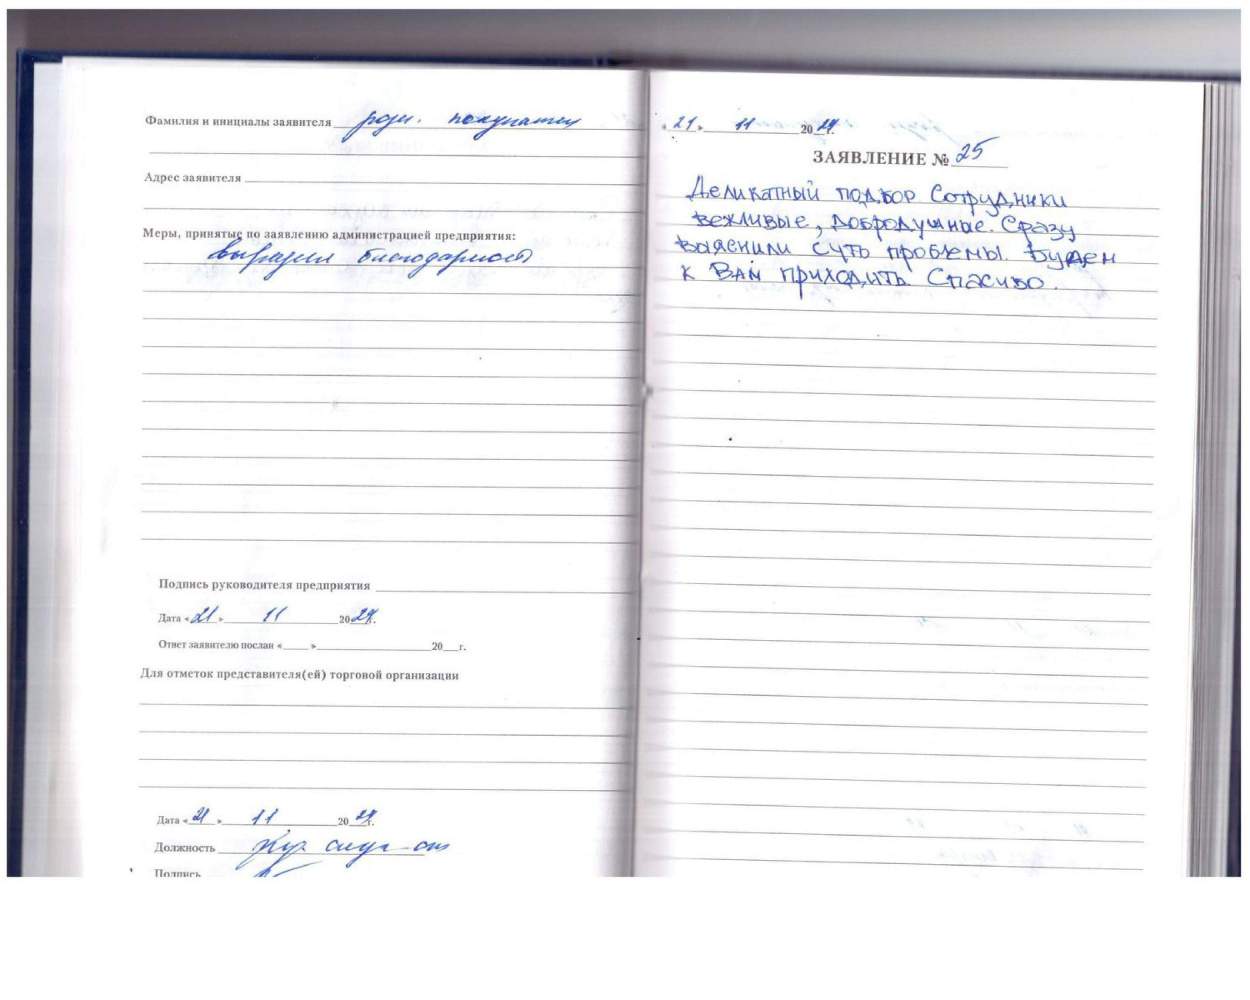 Фамилия и инициалы заявителя
Адрес заявителя
Меры, принятые по заявлению администрацией предприятия:
выразили благодарность
Подпись руководителя предприятия
Дата « 21 » 11 2024г.
Ответ заявителю послан « » 20 г.
Для отметок представителя(ей) торговой организации
Дата « 21 » 11 2024г.
Должность
Подпись
« 21 » 11 2024г.
ЗАЯВЛЕНИЕ № 25
Деликатный подбор Сотрудники
вежливые, добродушные. Сразу
выяснили суть проблемы. Будем
к Вам приходить. Спасибо.